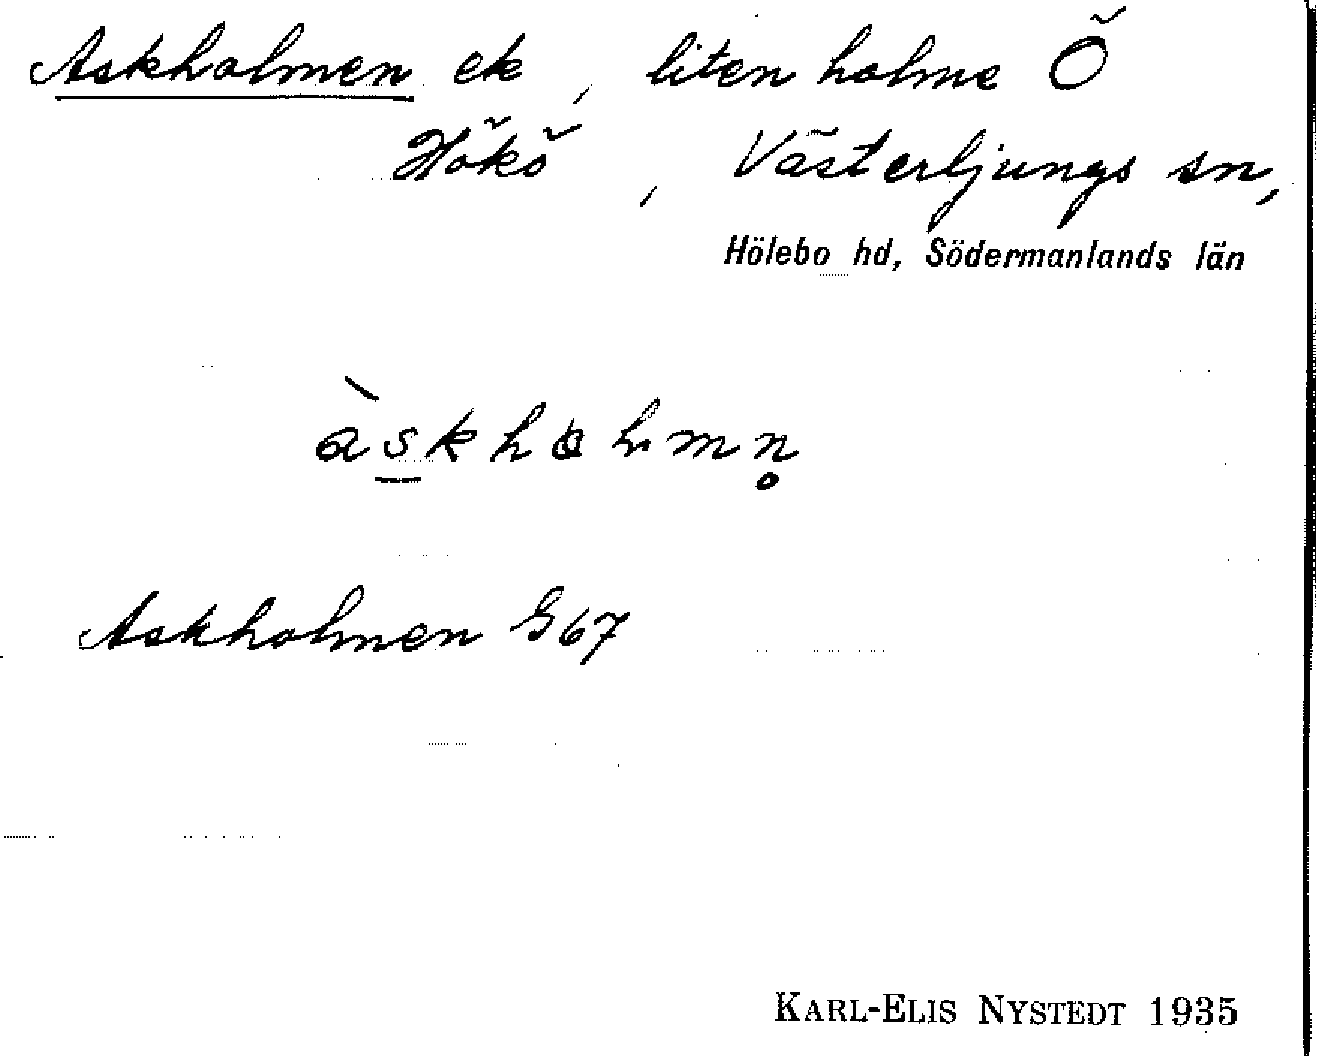 Askholmen ek, liten holme Ö
Hökö, Västerljungs sn,
Hölebo hd, Södermanlands län
Askholmen G67
KARL-ELIS NYSTEDT 1935